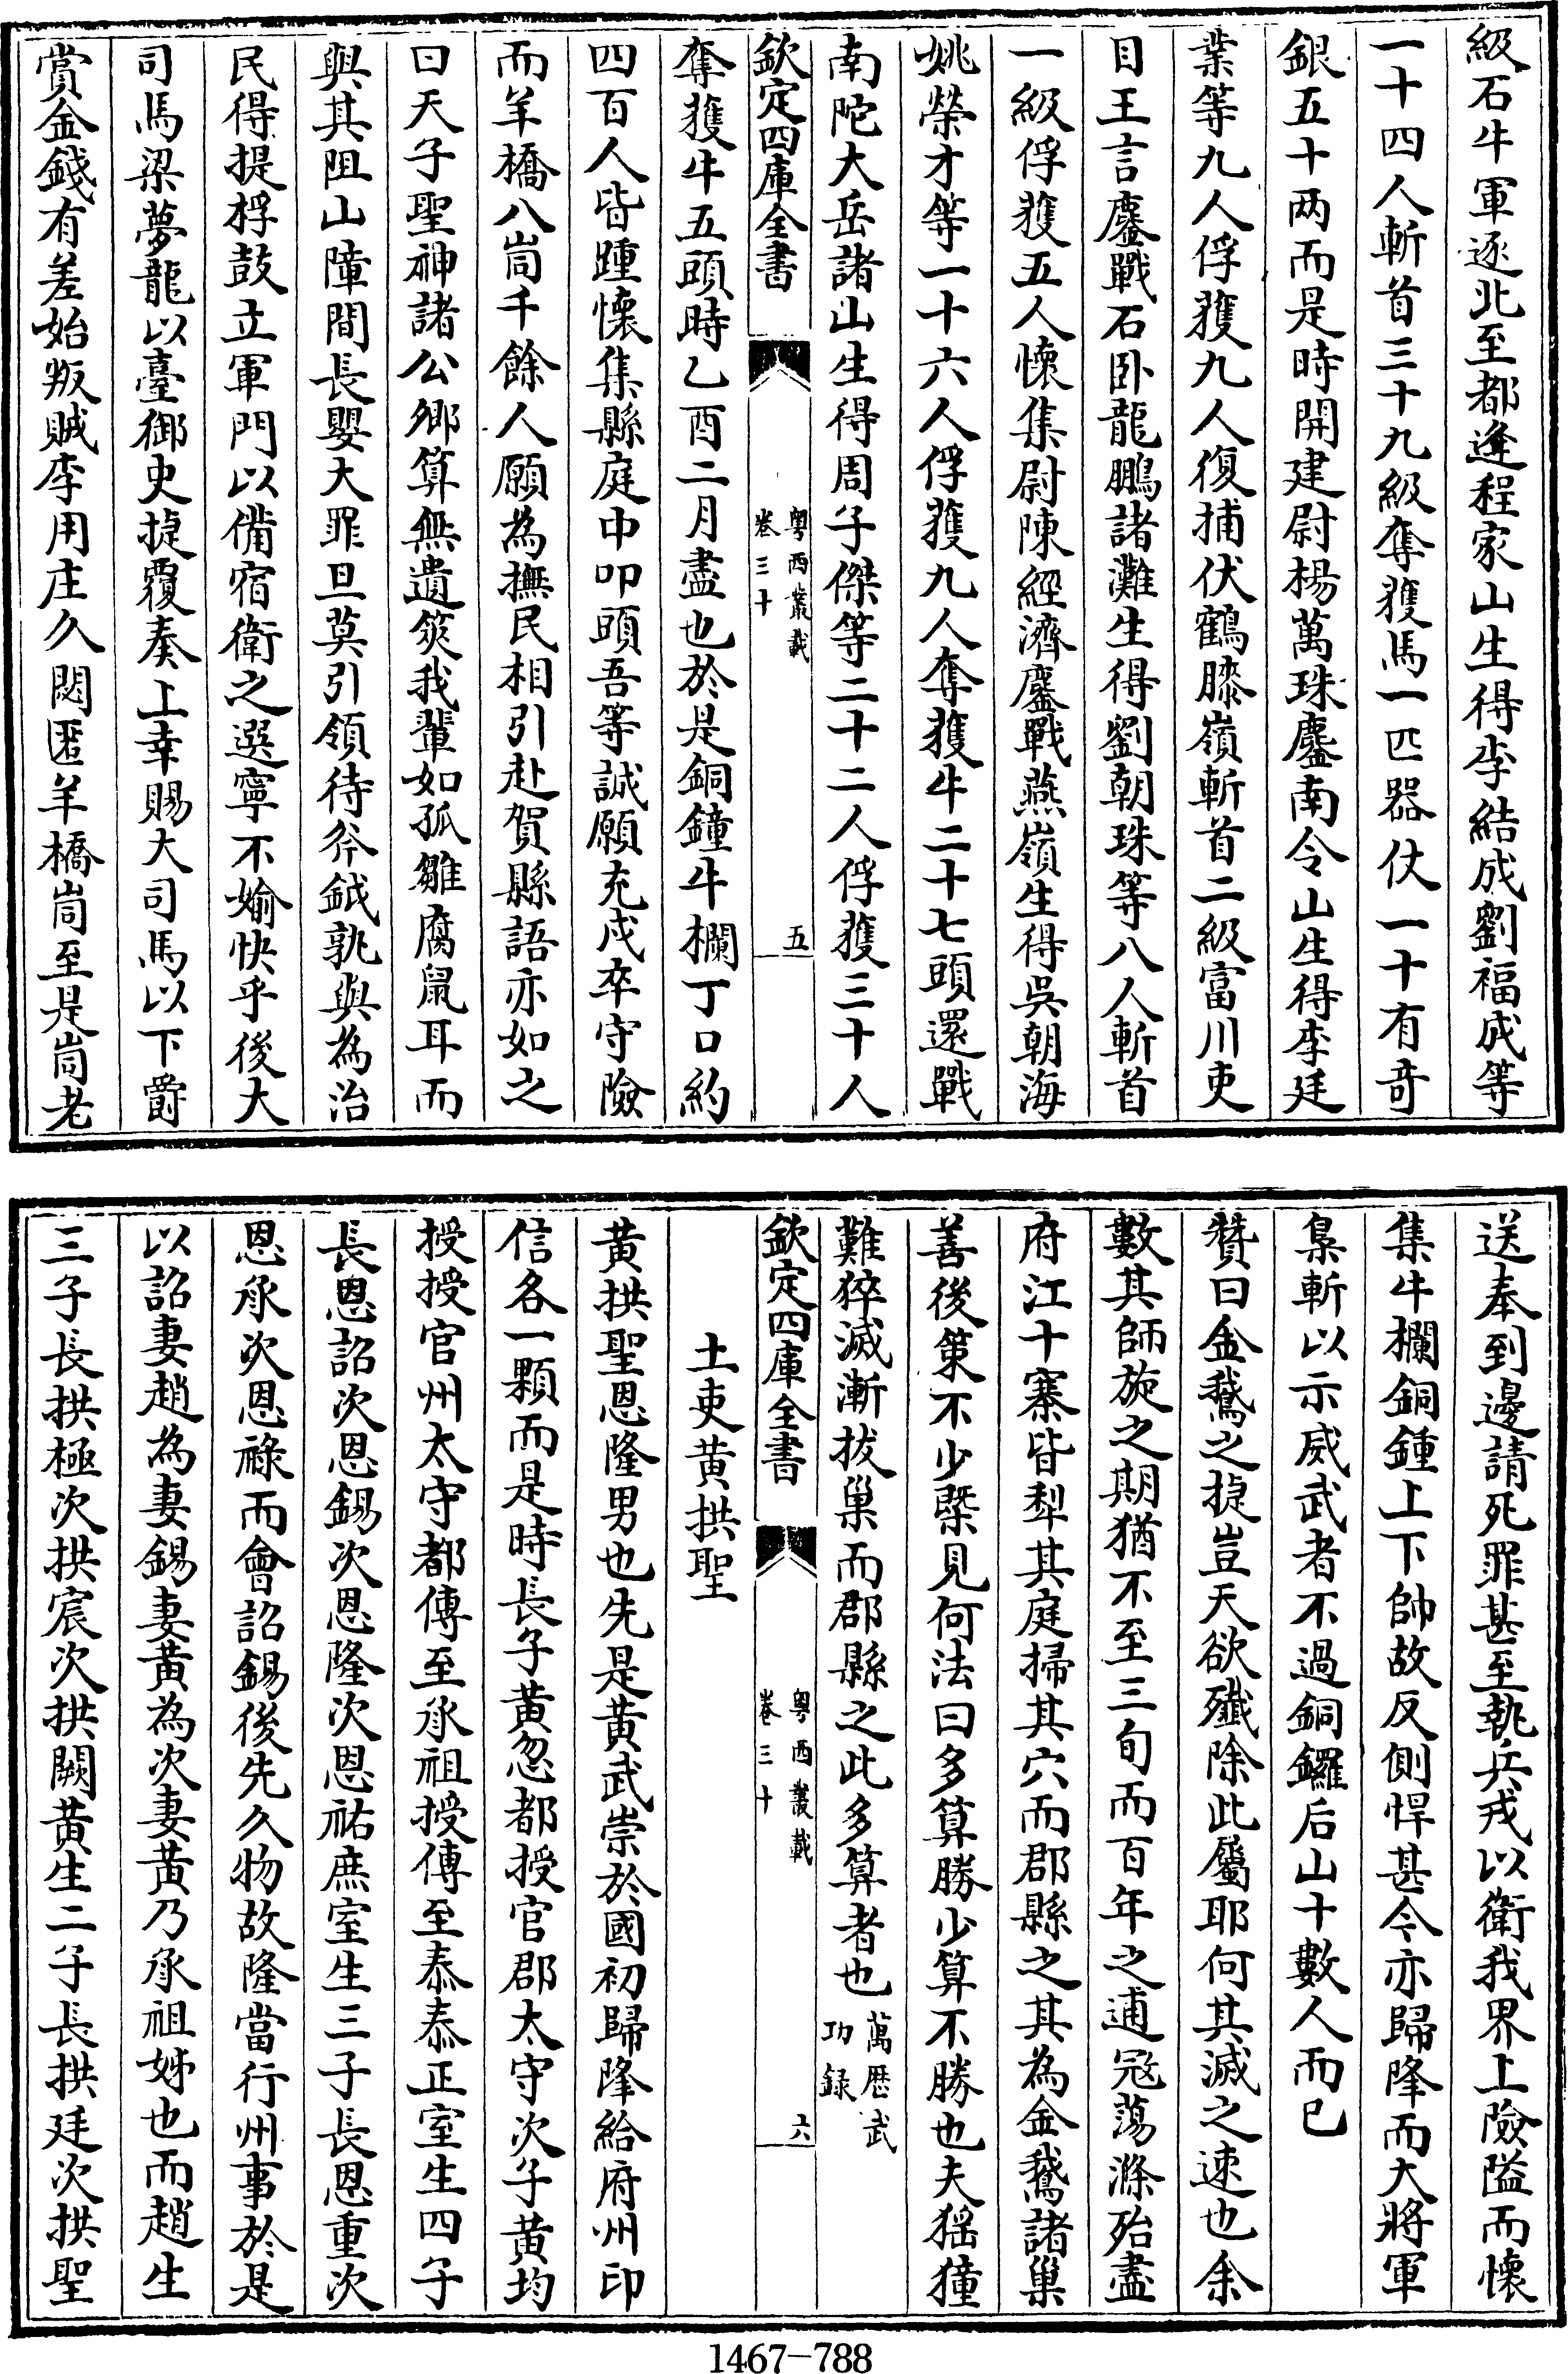 級石牛軍逐北至都逢程家山生得李結成劉福成等
一十四人斬首三十九級奪獲馬一匹器仗一十有奇
銀五十两而是時開建尉楊萬珠鏖南令山生得李廷
業等九人俘獲九人復捕伏鶴膝嶺斬首二級富川吏
目王言鏖戰石卧龍鵬諸灘生得劉朝珠等八人斬首
一級俘獲五人懷集尉陳經濟鏖戰燕嶺生得吳朝海
姚榮才等一十六人俘獲九人奪獲牛二十七頭還戰
南陀大岳諸山生得周子傑等二十二人俘獲三十人
欽定四庫全書
粤西叢載
卷三十
五
奪獲牛五頭時乙酉二月盡也於是銅鐘牛欄丁口約
四百人皆踵懷集縣庭中叩頭吾等誠願充戍卒守險
而羊橋八峝千餘人願為撫民相引赴賀縣語亦如之
曰天子聖神諸公卿算無遺筴我輩如孤雛腐鼠耳而
與其阻山障間長嬰大罪旦莫引領待斧鉞孰與為治
民得提桴鼓立軍門以備宿衛之選寧不媮快乎後大
司馬梁夢龍以臺御史捷覆奏上幸賜大司馬以下爵
賞金錢有差始叛賊李用庄久閟匿羊橋峝至是峝老
送奉到邊請死罪甚至執兵戎以衛我界上險隘而懷
集牛欄銅鍾上下帥故反側悍甚今亦歸降而大將軍
梟斬以示威武者不過銅鑼后山十數人而已
贊曰金鵞之捷豈天欲殲除此屬耶何其滅之速也余
數其師旋之期猶不至三旬而百年之逋冦蕩滌殆盡
府江十寨皆犁其庭掃其穴而郡縣之其為金鵞諸巢
善後策不少槩見何法曰多算勝少算不勝也夫猺獞
難猝滅漸拔巢而郡縣之此多算者也萬歴武
功録
欽定四庫全書
粤西叢載
卷三十
六
土吏黄拱聖
黄拱聖恩隆男也先是黄武崇於國初歸降給府州印
信各一顆而是時長子黄忽都授官郡太守次子黄均
授授官州太守都傳至承祖授傳至泰泰正室生四子
長恩詔次恩錫次恩隆次恩祐庶室生三子長恩重次
恩承次恩祿而會詔錫後先久物故隆當行州事於是
以詔妻趙為妻錫妻黄為次妻黄乃承祖姊也而趙生
三子長拱極次拱宸次拱闕黄生二子長拱廷次拱聖
1467-788